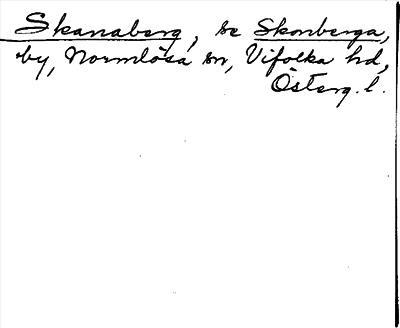 Skanaberg, se Skonberga,
by, Normlösa sn, Vifolka hd,
Österg. l.